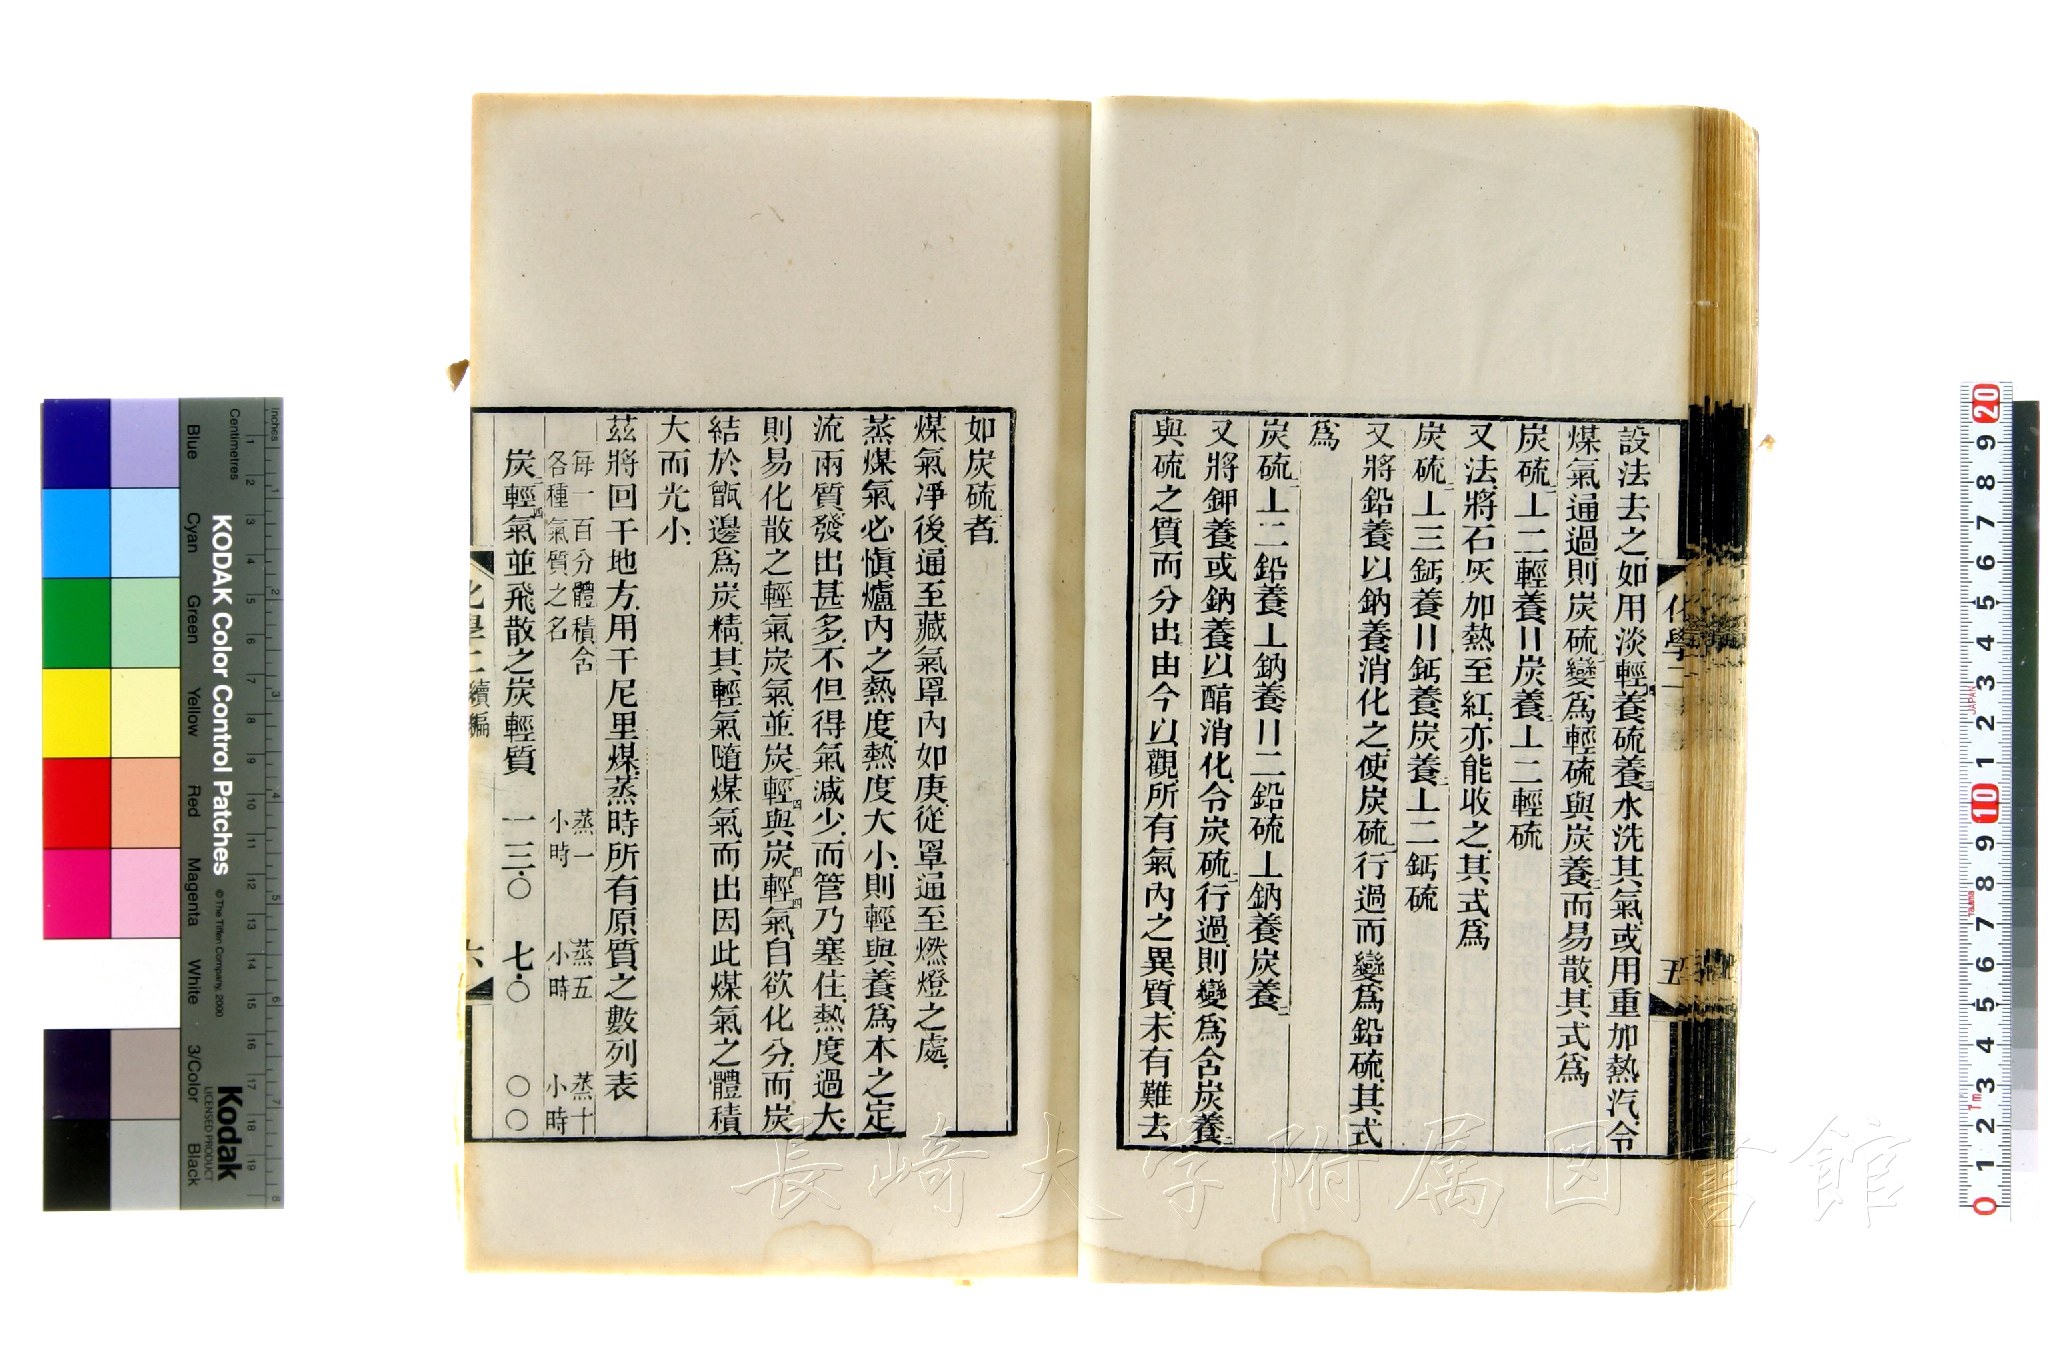 設法去之如用淡輕四養硫養三水洗其氣或用重加熱汽令
煤氣通過則炭硫二變爲輕硫與炭養二而易散其式爲
炭硫二⊥二輕養〢炭養二⊥二輕硫
又法將石灰加熱至紅亦能收之其式爲
炭硫二⊥三鈣養〢鈣養炭養二⊥二鈣硫
又將鉛養以鈉養消化之使炭硫二行過而變爲鉛硫其式
爲
炭硫二⊥二鉛養⊥鈉養〢二鉛硫⊥鈉養炭養二
又將鉀養或鈉養以醕消化令炭硫二行過則變爲含炭養二
與硫之質而分出由今以觀所有氣內之異質未有難去
化學二
五
如炭硫二者
煤氣凈後通至藏氣罩內如庚從罩通至燃燈之處
蒸煤氣必愼爐內之熱度熱度大小則輕與養爲本之定
流兩質發出甚多不但得氣減少而管乃塞住熱度過大
則易化散之輕氣炭氣並炭二輕四與炭四輕四氣自欲化分而炭
結於甑邊爲炭精其輕氣隨煤氣而出因此煤氣之體積
大而光小
茲將回干地方用干尼里煤蒸時所有原質之數列表
每一百分體積含
各種氣質之名
蒸一小時
蒸五小時
蒸十小時
炭二輕四氣並飛散之炭輕質 一三·〇 七·〇 〇〇
續編
六
Inches
Centimetres
KODAK Color Control Patches
© The Tiffen Company, 2000
Kodak
LICENSED PRODUCT
Blue Cyan Green Yellow Red Magenta White 3/Color Black
20 9 8 7 6 5 4 3 2 1 10 9 8 7 6 5 4 3 2 1 0
長崎大学附属図書館